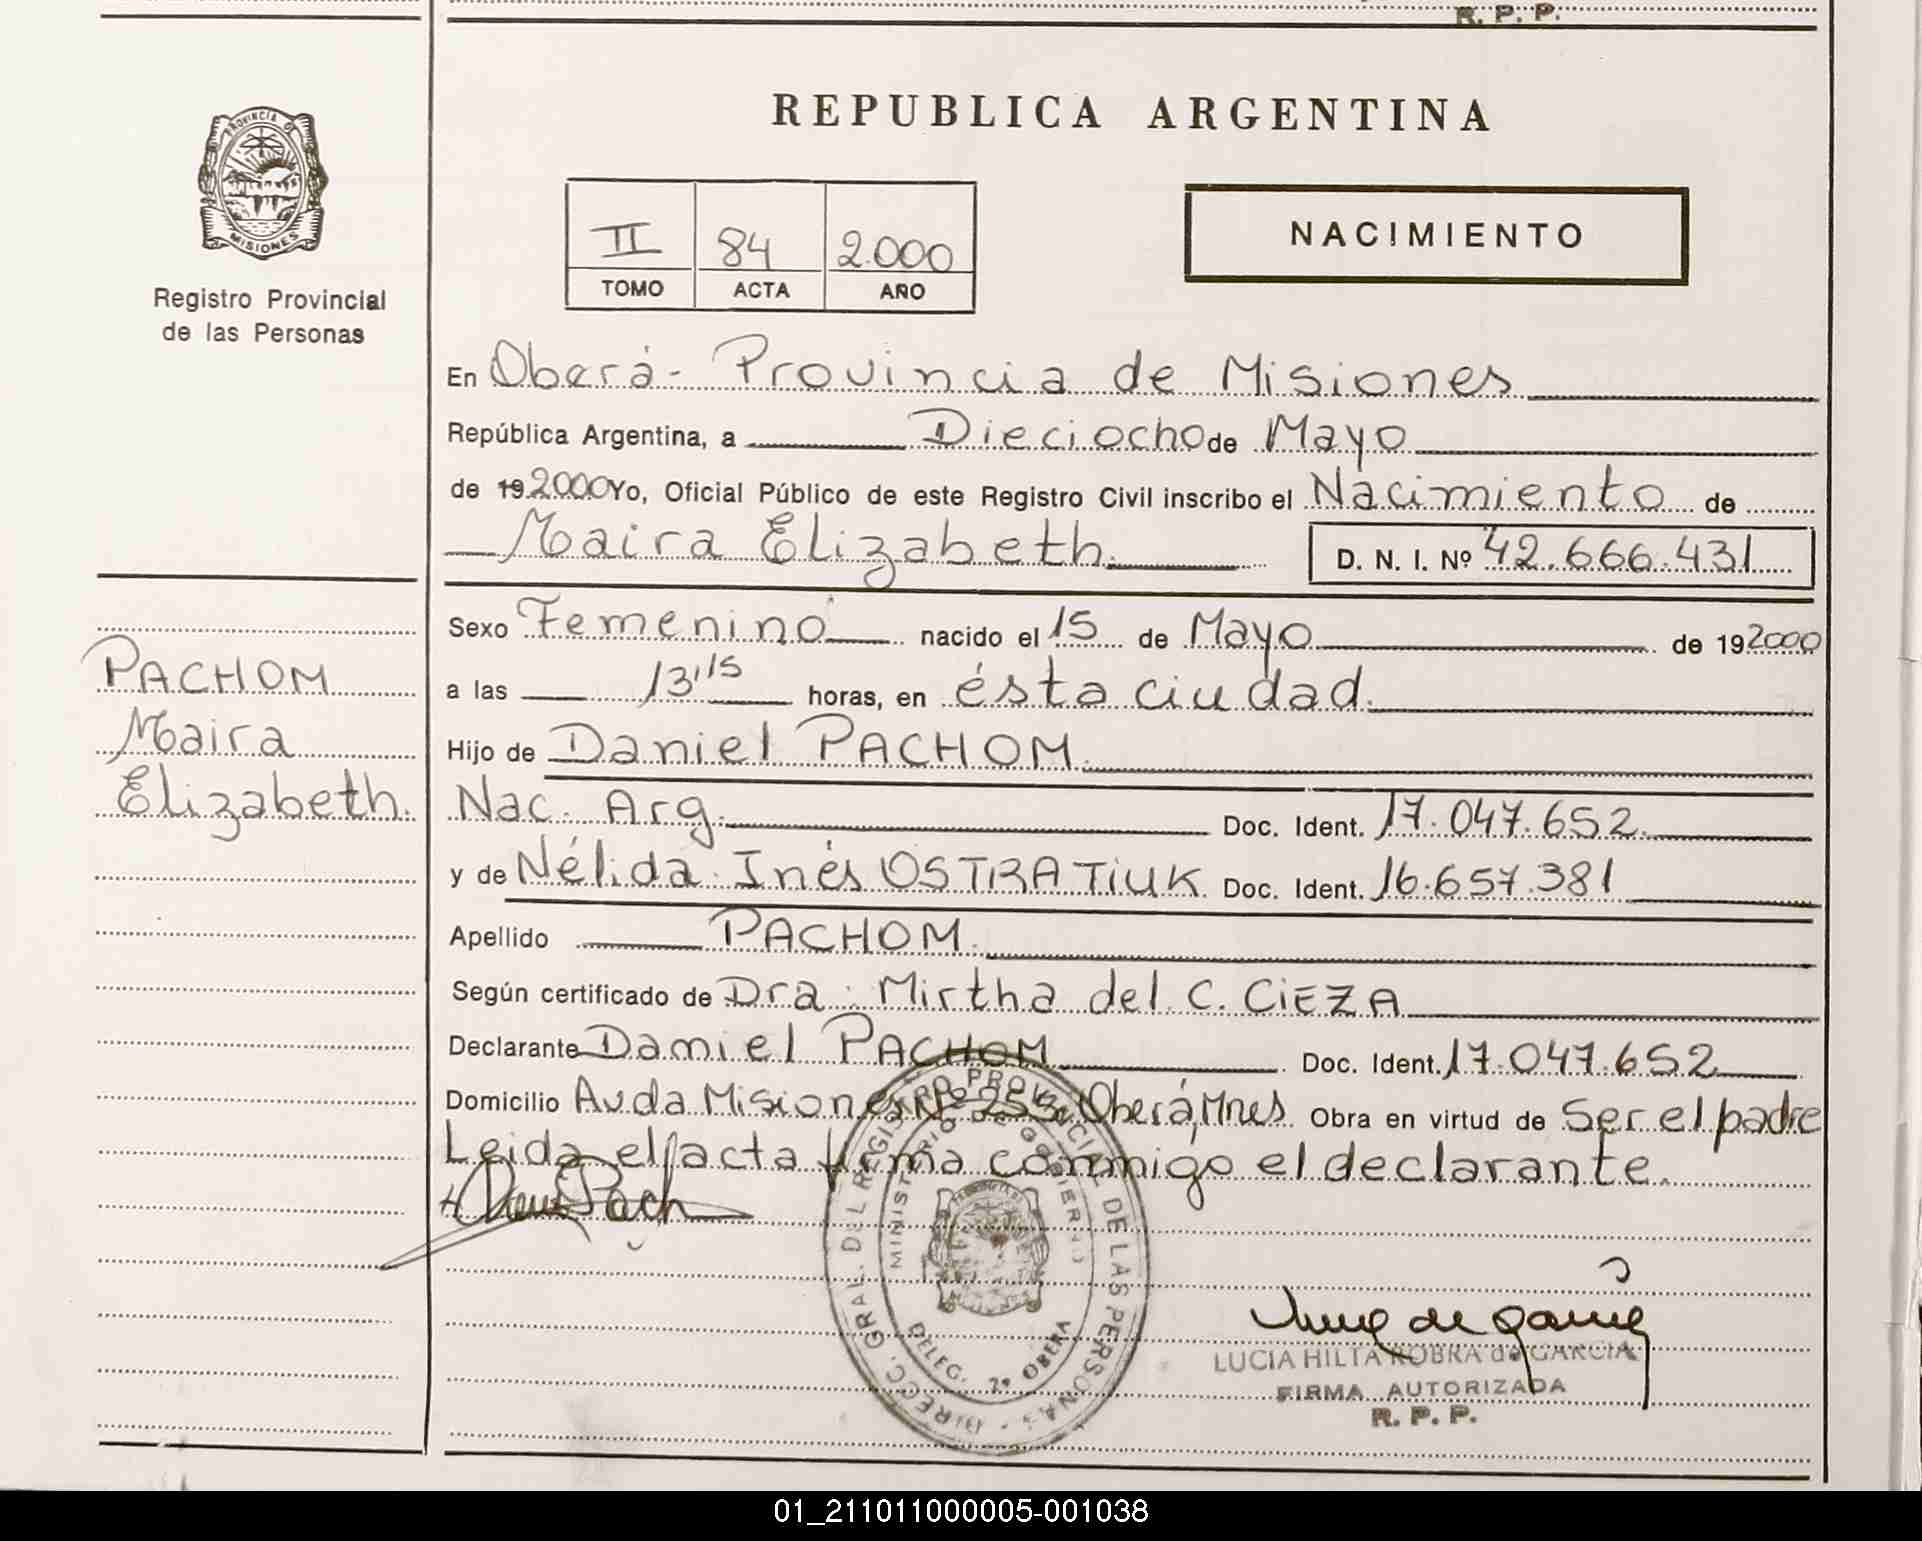 R. P. P.
REPUBLICA ARGENTINA
PROVINCIA DE
MISIONES
Registro Provincial
de las Personas
II 84 2.000
TOMO ACTA AÑO
NACIMIENTO
En Oberá - Provincia de Misiones
República Argentina, a Dieciocho de Mayo
de 19 2000 Yo, Oficial Público de este Registro Civil inscribo el Nacimiento de
Maira Elizabeth. D. N. I. Nº 42.666.431
Sexo Femenino nacido el 15 de Mayo de 19 2000
a las 13,15 horas, en ésta ciudad.
Hijo de Daniel PACHOM.
Nac. Arg. Doc. Ident. 17.047.652
y de Nélida Inés OSTRATIUK Doc. Ident. 16.657.381
Apellido PACHOM.
Según certificado de Dra. Mirtha del C. CIEZA
Declarante Daniel PACHOM Doc. Ident. 17.047.652
Domicilio Avda Misiones Nº 255. Oberá, Mnes Obra en virtud de Ser el padre
Leida el acta firma conmigo el declarante.
PACHOM
Maira
Elizabeth.
DIRECC. GRAL. DEL REGISTRO PROVINCIAL DE LAS PERSONAS
MINISTERIO DE GOBIERNO
DELEG. 2ª OBERA
LUCIA HILTA ROBRA de GARCIA
FIRMA AUTORIZADA
R. P. P.
01_211011000005-001038